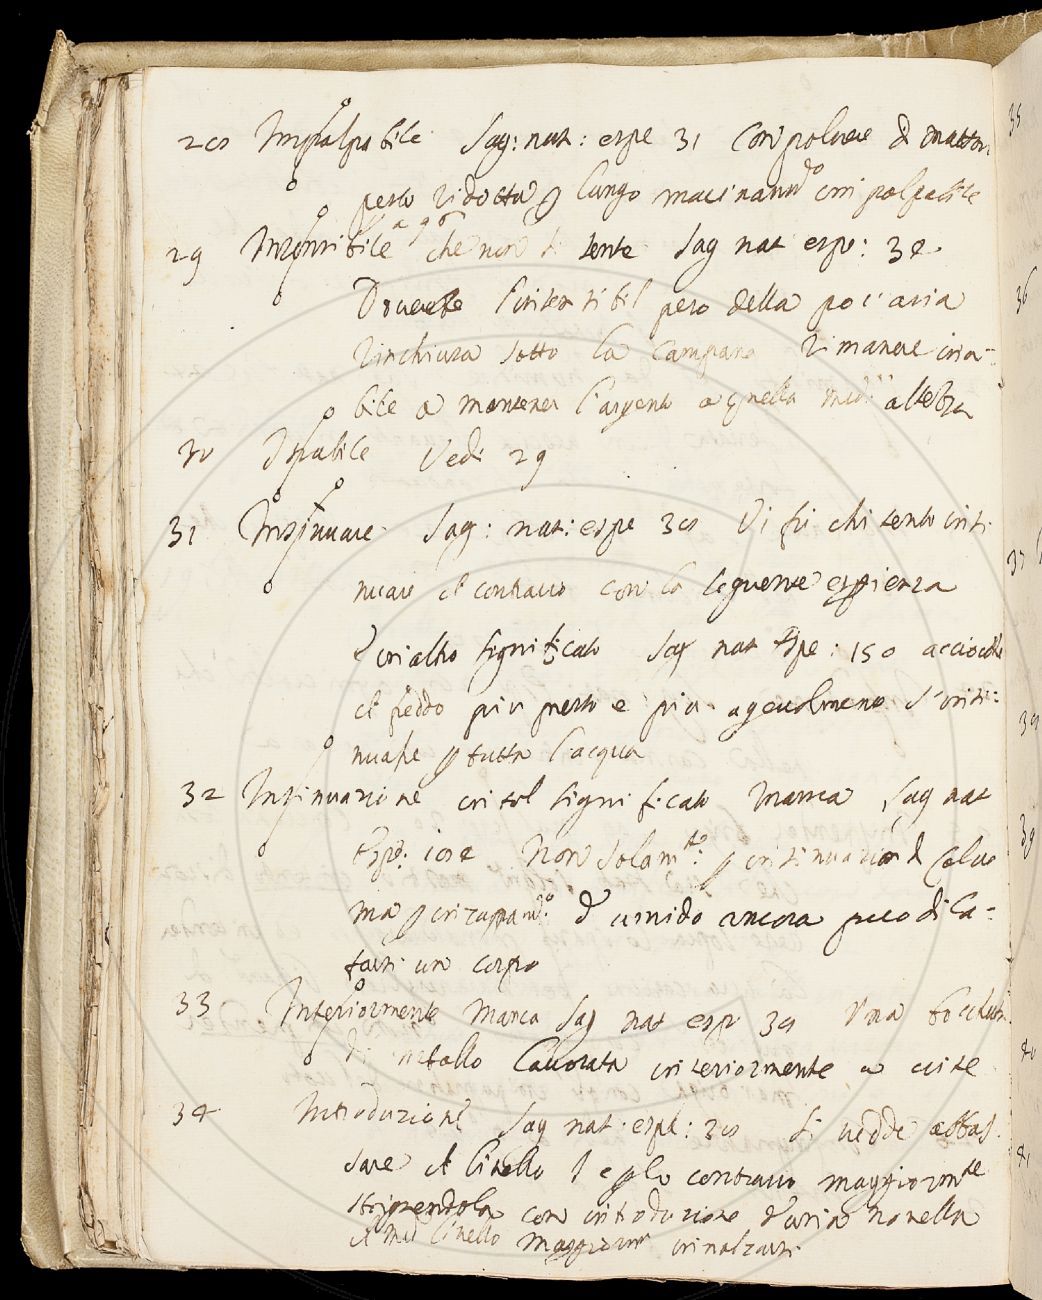 28 Impalpabile Sag: nat: espe 31 Con polvere di matton
pesto ridotta p lungo macinamto impalpabile
29 Insensibile che non si sente Sag nat espe: 32.
Dovendo l'insensibil peso della poc' aria
rinchiusa sotto la campana rimanere ina=
bile a mantener l'argento a quella medma altezza
30 Vedi 29
31 Insinuare Sag: nat: espe 38 Vi fù chi tentò insi
nuare il contrario con la seguente esperienza
E in altro significato Sag nat Espe: 150 acciocche
il freddo più presto e più agevolmente s'insi=
nuasse p tutta l'acqua
32 Insinuazione in tal significato Manca Sag nat
Espe. Non solamte: p insinuazion di
ma p inzuppamto: d'umido ancora
farsi un corpo
33 Interiormente Manca Sag nat espe 38 Una bocchetta
di metallo lavorata interiormente a vite
34 Introduzione Sag nat: espe: 38 Si vedde abbas
sare il livello e p lo contrario maggiormte
strignendola con introduzione d'aria novella
il med livello maggiorm innalzarsi
35
36
37
38
39
40
41